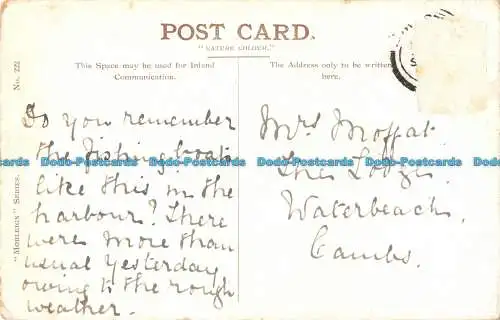 POST CARD.
"NATURE COLOUR."
This Space may be used for Inland
Communication.
The Address only to be written
here.
No. 222
"MORLEDEN" SERIES.
Do you remember
the fishing boats
like this in the
harbour? There
were more than
usual yesterday
owing to the rough
weather.
Mrs Moffat.
The Lodge.
Waterbeach,
Cambs.
Dodo-Postcards Dodo-Postcards Dodo-Postcards Dodo-Postcards Dodo-Postcards